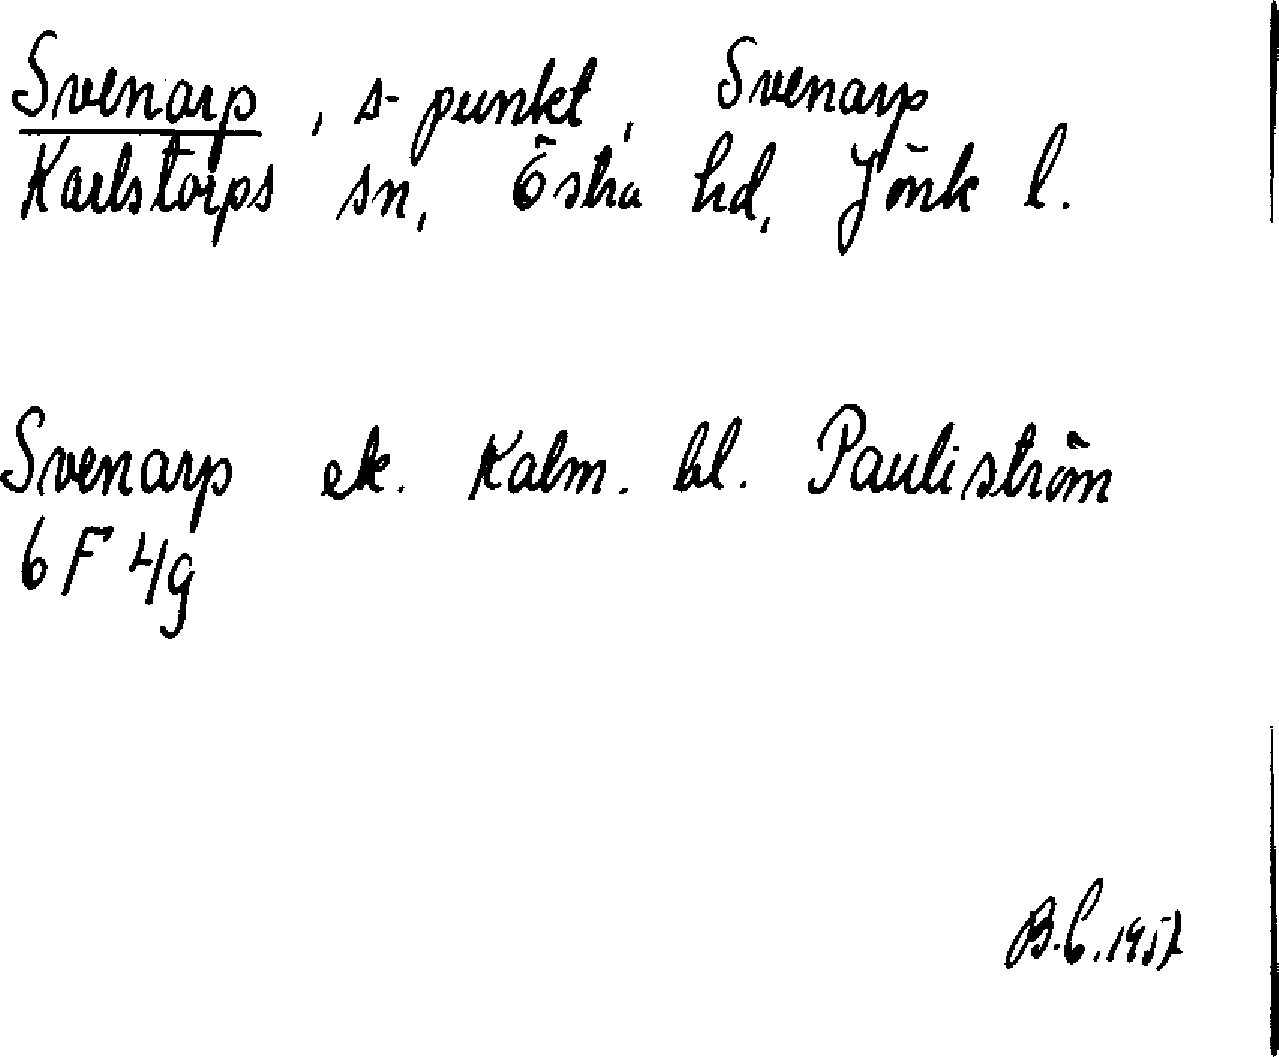 Svenarp, s-punkt, Svenarp
Karlstorps sn, Östra hd, Jönk l.
Svenarp ek. Kalm. bl. Pauliström
6 F 4g
B.C. 1957